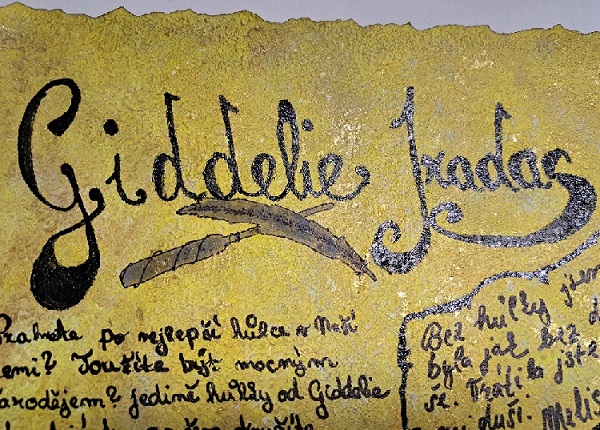 Giddelie Iradas
Prahnete po nejlepší hůlce v Naší
zemi? Toužíte být mocným
čarodějem? jedině hůlky od Giddelie
Bez hůlky jsem
byla jak bez d
še. Ztratila jste
duši. Melis